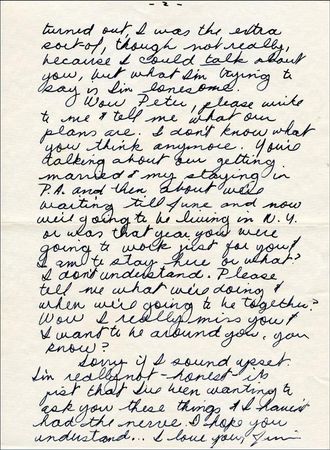 - 2 -
turned out, I was the extra
sort-of, though not really,
because I could talk about
you, but what I'm trying to
say is I'm lonesome.
Wow Peter, please write
to me & tell me what our
plans are. I don't know what
you think anymore. You're
talking about our getting
married & my staying in
P.A. and then about we're
waiting till June and now
we're going to be living in N.Y.
or was that year you were
going to work just for you &
I am to stay here or what?
I don't understand. Please
tell me what we're doing &
when we're going to be together?
Wow I really miss you &
I want to be around you, you
know?
Sorry if I sound upset.
I'm really not - honest it's
just that I've been wanting to
ask you these things & I haven't
had the nerve. I hope you
understand... I love you,